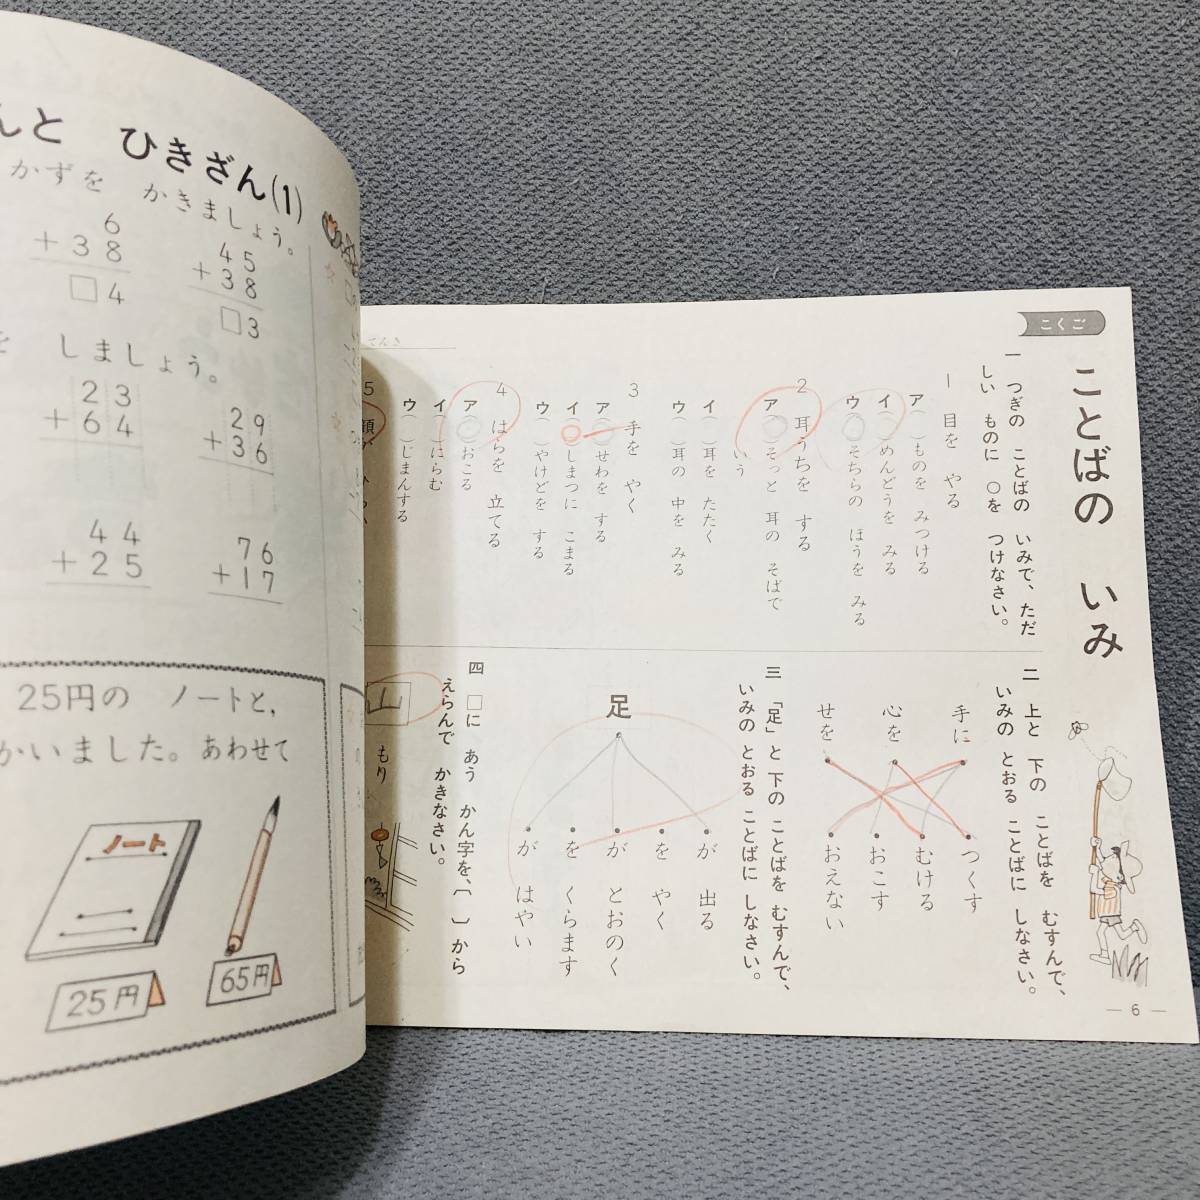 んと ひきざん(1)
かずを かきましょう。
6
+38
□4
45
+38
□3
を しましょう。
23
+64
29
+36
44
+25
76
+17
25円の ノートと、
かいました。あわせて
ノート
25円
65円
こくご
ことばの いみ
一 つぎの ことばの いみで、ただ
しい ものに ○を つけなさい。
1 目を やる
ア( )ものを みつける
イ( )めんどうを みる
ウ( )そちらの ほうを みる
2 耳うちを する
ア( )そっと 耳の そばで
いう
イ( )耳を たたく
ウ( )耳の 中を みる
3 手を やく
ア( )せわを する
イ( )しまつに こまる
ウ( )やけどを する
4 はらを 立てる
ア( )おこる
イ( )にらむ
ウ( )じまんする
5
頭が
てんき
二 上と 下の ことばを むすんで、
いみの とおる ことばに しなさい。
手に
心を
せを
つくす
むける
おこす
おえない
三 「足」と 下の ことばを むすんで、
いみの とおる ことばに しなさい。
足
が 出る
を やく
が とおのく
を くらます
が はやい
四 □に あう かん字を、〔 〕から
えらんで かきなさい。
山
もり
— 6 —